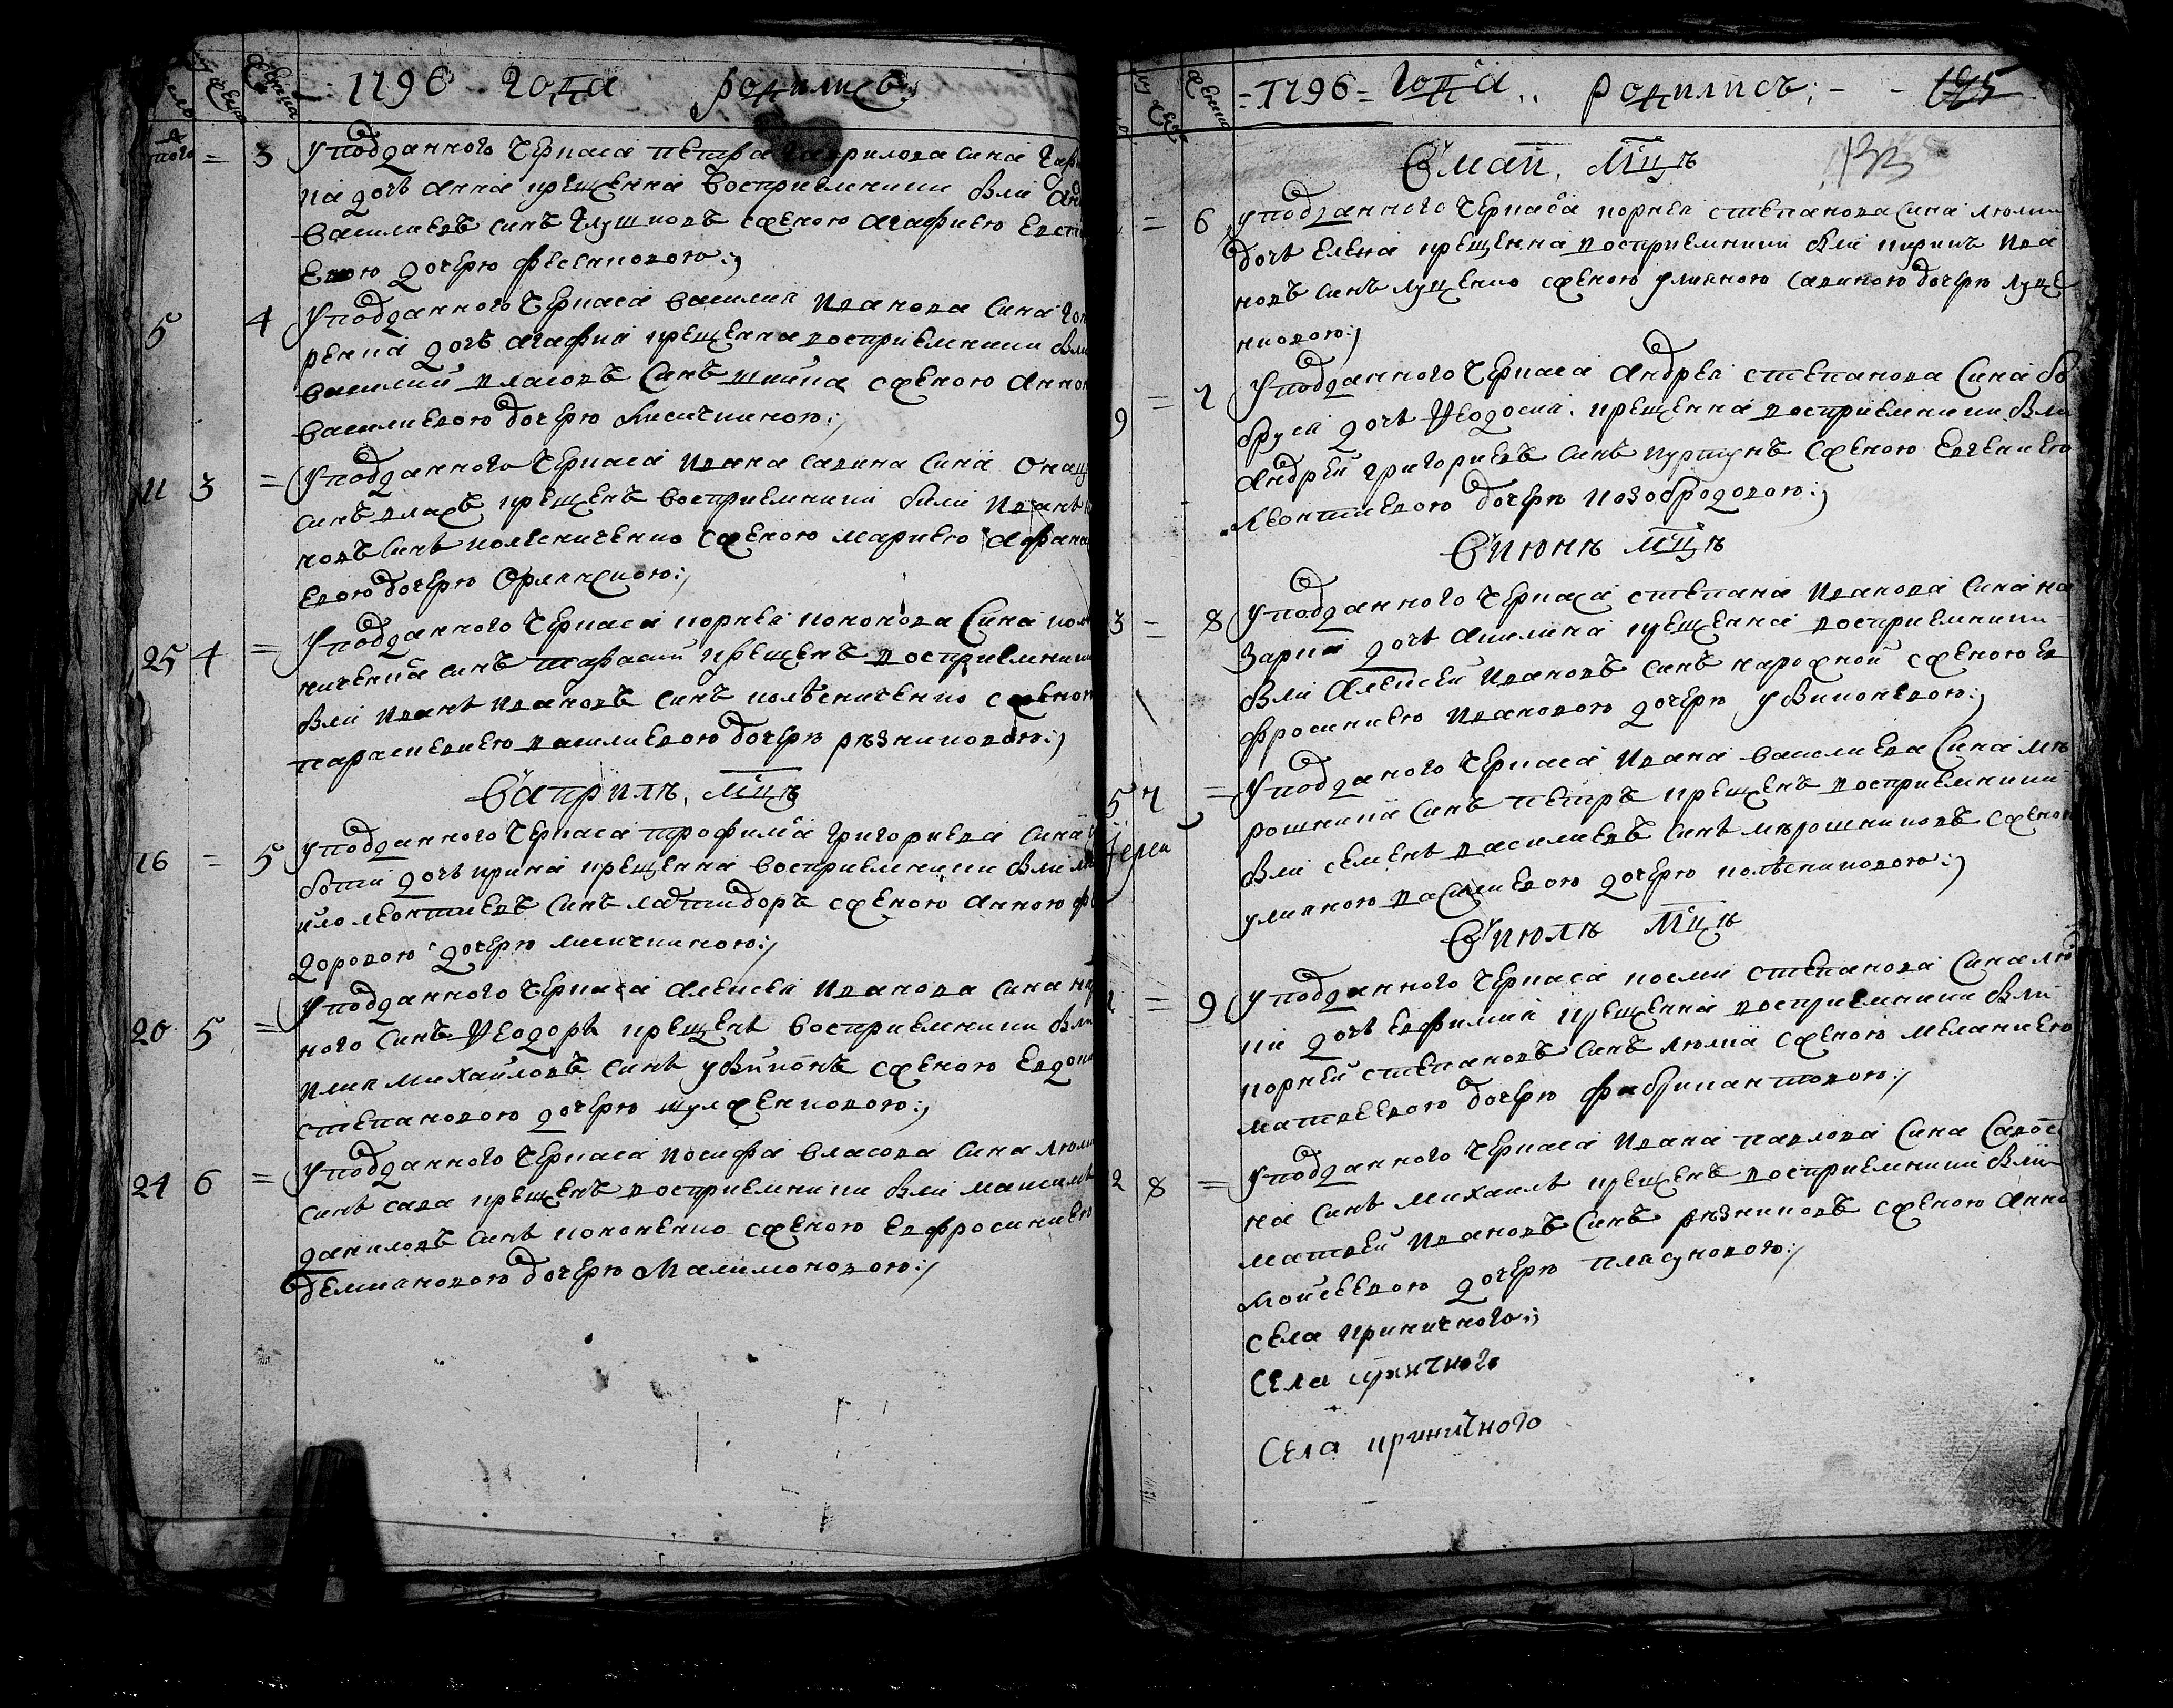 1796 года родились:
того = 3 Уподданного черкаса петра гаврилова сина
на дочъ анна крещенна восприемники бли
василиевъ синъ глушковъ сженою агафиею
евою дочерю фесенковою:,
5 4 Уподданного черкаса василия иванова сина
ренка дочъ агафия крещенна восприемники бли
василий власовъ синъ шийка сженою анною
василиевою дочерю лисичкиною:,
11 3 = Уподданного черкаса ивана савина сина
синъ власъ крещенъ восприемники били иванъ
новъ синъ колесниченко сженою мариею афана
евою дочерю орлянскою:,
25 4 = Уподданного черкаса корнея кононова сина кол
ниченка синъ тарасий крещенъ восприемники
бли иванъ ивановъ синъ колѣсниченко сженою
параскевиею василиевою дочерю рѣзниковою:,
Ваприлѣ, мцѣ
16 = 5 Уподданного черкаса трофима григориева сина
боти дочъ ирина крещенна восприемники бли
ило леонтиевъ синъ сженою анною
доровою дочерю лисичкиною:,
20 5 = Уподданного черкаса алексея иванова сина
ного синъ Ѳеодоръ крещенъ восприемники бли
илия михайловъ синъ убийконь сженою евдоки
степановою дочерю шулженковою:,
24 6 = Уподданного черкаса иосифа власова сина люлки
синъ сава крещенъ восприемники бли максимъ
даниловъ синъ кононенко сженою евфросиниею
демяновою дочерю малимоновою:,
= 1796 = года .. родились; - - 195
133
Вмаи, мцѣ
= 6 Уподданного черкаса корнея степанова сина люлки
дочъ елена крещенна восприемники бли кирикъ ива
новъ синъ луценко сженою уляною савиною дочерю луце
нковою:,
9 = 7 Уподданного черкаса андрея степанова сина бо
бруся дочъ Ѳеодосия крещенна восприемники бли
андрей григориевъ синъ сженою евгениею
леонтиевою дочерю козобродовою:,
Виюнѣ мцѣ
3 = 8 Уподданного черкаса степана иванова сина на
зарка дочъ акилина крещенна восприемники
бли алексей ивановъ синъ нарожной сженою ев
фросиниею ивановою дочерю убиконевою:,
5 7 = Уподданого черкаса ивана василиева сина мѣ
рошника синъ петръ крещенъ восприемники
бли семенъ василиевъ синъ мѣрошниковъ сженою
уляною василиевою дочерю колѣсниковою:,
Виюлѣ мцѣ
= 9 Уподданного черкаса косми степанова сина лю
ки дочъ евфимия крещенна восприемники бли
корней степановъ синъ люлка сженою меланиею
матвеевою дочерю фабрикантовою:,
2 8 = Уподданного черкаса ивана павлова сина савост
на синъ михаилъ крещенъ восприемники бли
матвей ивановъ синъ рѣзниковъ сженою анною
мойсеевою дочерю пласуновою:,
села криничного:,
Села криничного
Села криничного